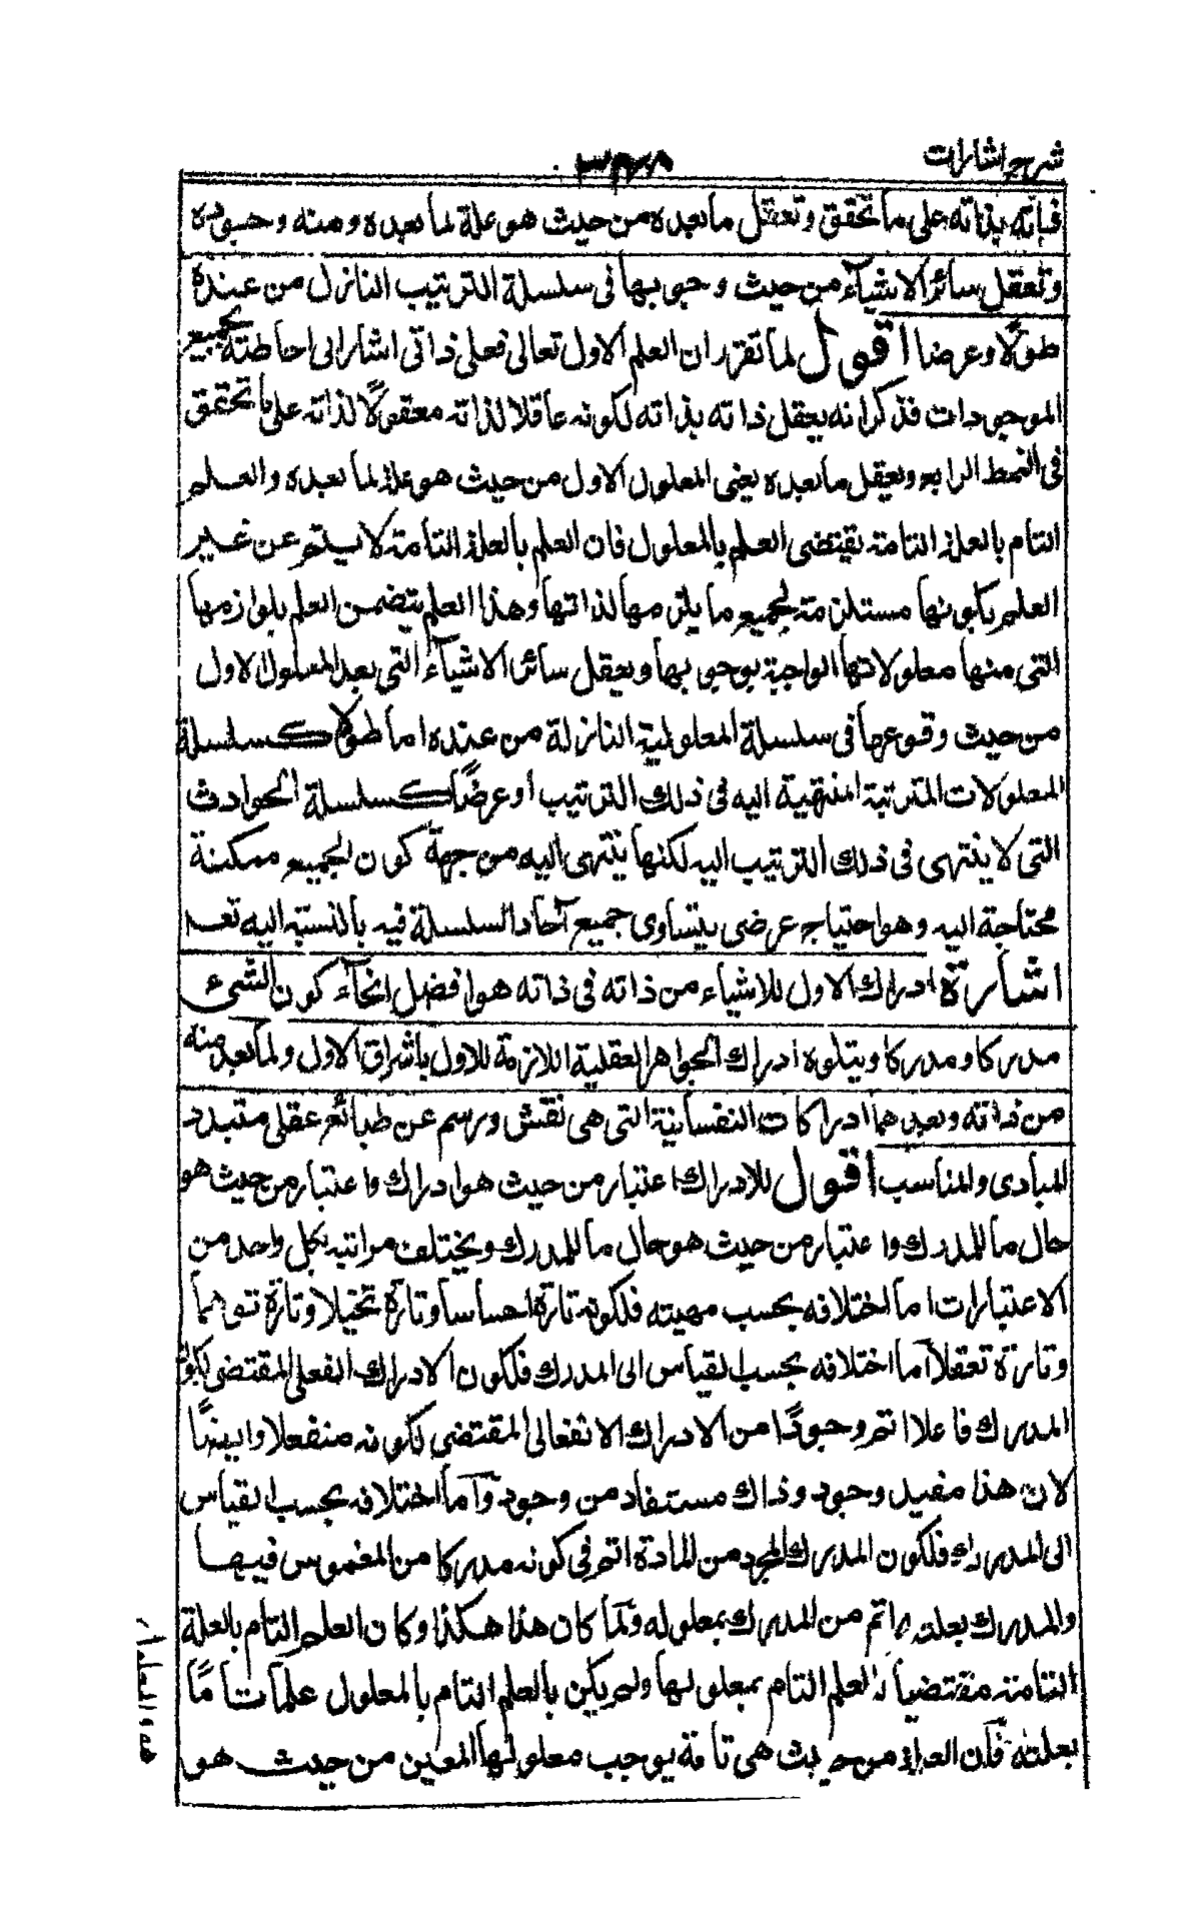 شرح اشارات
٣٤٨
ذاته بذاته على ما تحقق وتعقل ما بعده من حيث هو علة لما بعده ومنه وجوده
وتعقل سائر الاشيآء من حيث وجوبها فى سلسلة الترتيب النازل من عنده
طولا وعرضا اقول لما تقرر ان العلم الاول تعالى فعلى ذاتى اشار الى احاطته بجميع
الموجودات فذكر انه يعقل ذاته بذاته لكونه عاقلا لذاته معقولًا لذاته على ما تحقق
فى النمط الرابع ويعقل ما بعده يعنى المعلول الاول من حيث هو علة لما بعده والعلم
التام بالعلة التامة يقتضى العلم بالمعلول فان العلم بالعلة التامة لا يتم عن غير
العلم بكونها مستلزمة لجميع ما يلزمها لذاتها وهذا العلم يتضمن العلم بلوازمها
التى منها معلولاتها الواجبة بوجوبها ويعقل سائر الاشيآء التى بعد المعلول الاول
من حيث وقوعها فى سلسلة المعلولية النازلة من عنده اما طولا كسلسلة
المعلولات المترتبة المنتهية اليه فى ذلك الترتيب او عرضًا كسلسلة الحوادث
التى لا ينتهى فى ذلك الترتيب اليه لكنها ينتهى اليه من جهة كون الجميع ممكنة
محتاجة اليه وهو احتياج عرضى يتساوى جميع آحاد السلسلة فيه بالنسبة اليه تعـ
اشارة ادراك الاول للاشياء من ذاته فى ذاته هو افضل انحآء كون الشىء
مدركا ومدركا ويتلوه ادراك الجواهر العقلية اللازمة للاول باشراق الاول ولما بعده منه
من ذاته وبعدهما ادراكات النفسانية التى هى نقش ورسم عن طبائع عقلى متبدد
المبادى والمناسب اقول للادراك اعتبار من حيث هو ادراك واعتبار من حيث هو
حال ما للمدرك واعتبار من حيث هو حال ما للمدرك ويختلف مراتبه بكل واحد من
الاعتبارات اما اختلافه بحسب مهيته فلكونه تارة احساسا وتارة تخيلا وتارة توهما
وتارة تعقلا اما اختلافه بحسب القياس الى المدرك فلكون الادراك الفعلى المقتضى لكون
المدرك فاعلا اتم وجودًا من الادراك الانفعالى المقتضى لكونه منفعلا وايضًا
لان هذا مفيد وجود وذاك مستفاد من وجود وآما اختلافه بحسب القياس
الى المدرك فلكون المدرك المجرد من المادة اتم فى كونه مدركا من المغموس فيها
والمدرك بعلته اتم من المدرك بمعلوله ولما كان هذا هكذا وكان العلم التام بالعلة
التامة مقتضيا للعلم التام بمعلولها ولم يكن بالعلم التام بالمعلول علما تامًا
بعلته فان العلة من حيث هى تامة يوجب معلولها المعين من حيث هو
هو والمعلول